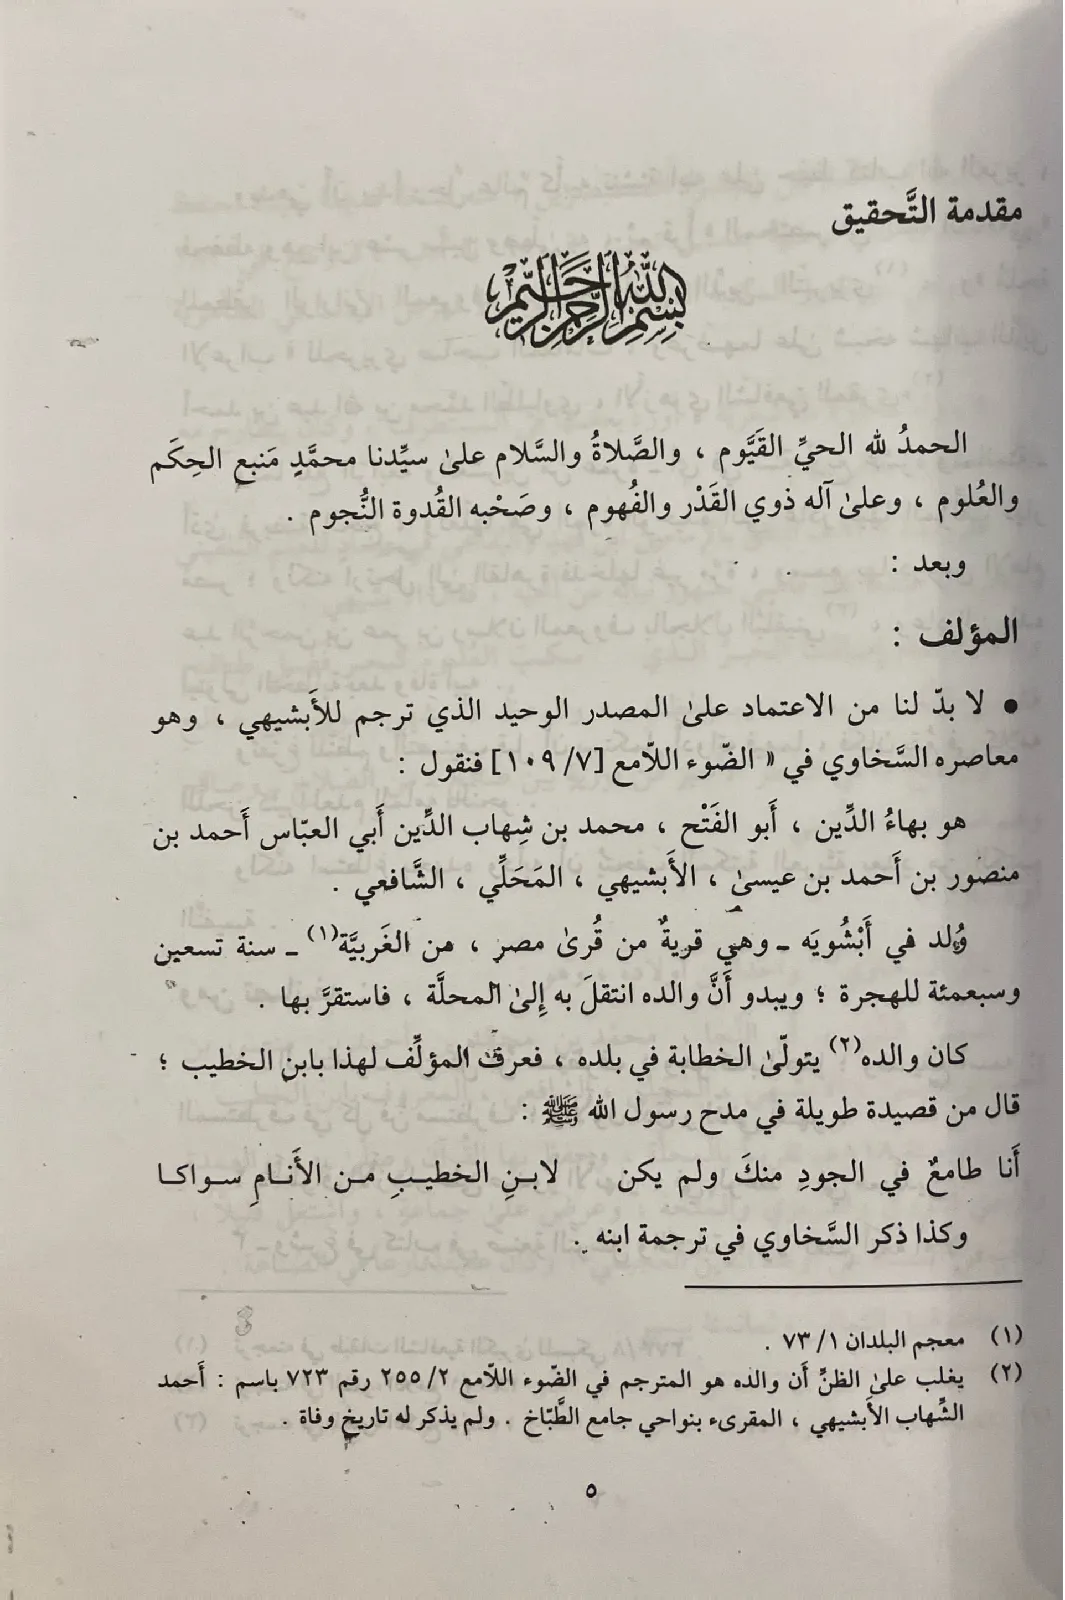 مقدمة التَّحقيق
بِسْمِ اللَّهِ الرَّحْمَٰنِ الرَّحِيمِ
الحمدُ لله الحيِّ القَيَّوم ، والصَّلاةُ والسَّلام علىٰ سيِّدنا محمَّدٍ مَنبع الحِكَم
والعُلوم ، وعلىٰ آله ذوي القَدْر والفُهوم ، وصَحْبه القُدوة النُّجوم .
وبعد :
المؤلف :
● لا بدّ لنا من الاعتماد علىٰ المصدر الوحيد الذي ترجم للأَبشيهي ، وهو
معاصره السَّخاوي في « الضّوء اللاّمع [٧/ ١٠٩] فنقول :
هو بهاءُ الدِّين ، أَبو الفَتْح ، محمد بن شِهاب الدِّين أَبي العبّاس أَحمد بن
منصور بن أَحمد بن عيسىٰ ، الأَبشيهي ، المَحَلِّي ، الشَّافعي .
وُلد في أَبْشُويَه ـ وهي قريةٌ من قُرىٰ مصر ، من الغَربيَّة(١) ـ سنة تسعين
وسبعمئة للهجرة ؛ ويبدو أَنَّ والده انتقلَ به إِلىٰ المحلَّة ، فاستقرَّ بها .
كان والده(٢) يتولّىٰ الخطابة في بلده ، فعرف المؤلِّف لهذا بابن الخطيب ؛
قال من قصيدة طويلة في مدح رسول الله ﷺ :
أَنا طامعٌ في الجودِ منكَ ولم يكن لابـنِ الخطيـبِ مـن الأَنـامِ سـواكـا
وكذا ذكر السَّخاوي في ترجمة ابنه .
(١) معجم البلدان ١/ ٧٣ .
(٢) يغلب علىٰ الظنِّ أَن والده هو المترجم في الضّوء اللاّمع ٢/ ٢٥٥ رقم ٧٢٣ باسم : أَحمد
الشِّهاب الأَبشيهي ، المقرىء بنواحي جامع الطَّبّاخ . ولم يذكر له تاريخ وفاة .
٥